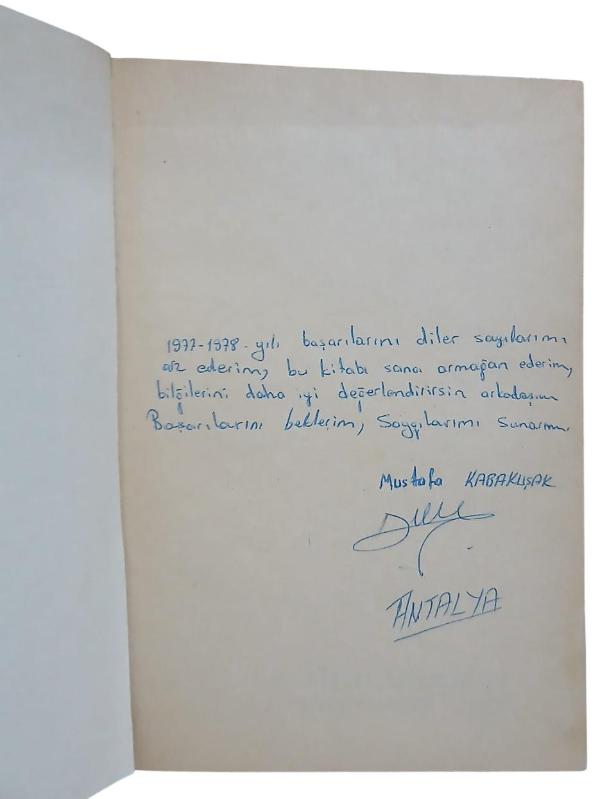 1977-1978 - yılı başarılarını diler saygılarımı
arz ederim, bu kitabı sana armağan ederim,
bilğilerini daha iyi değerlendirirsin arkadaşım
Başarılarını beklerim, Saygılarımı sunarım.
Mustafa KABAKUŞAK
ANTALYA